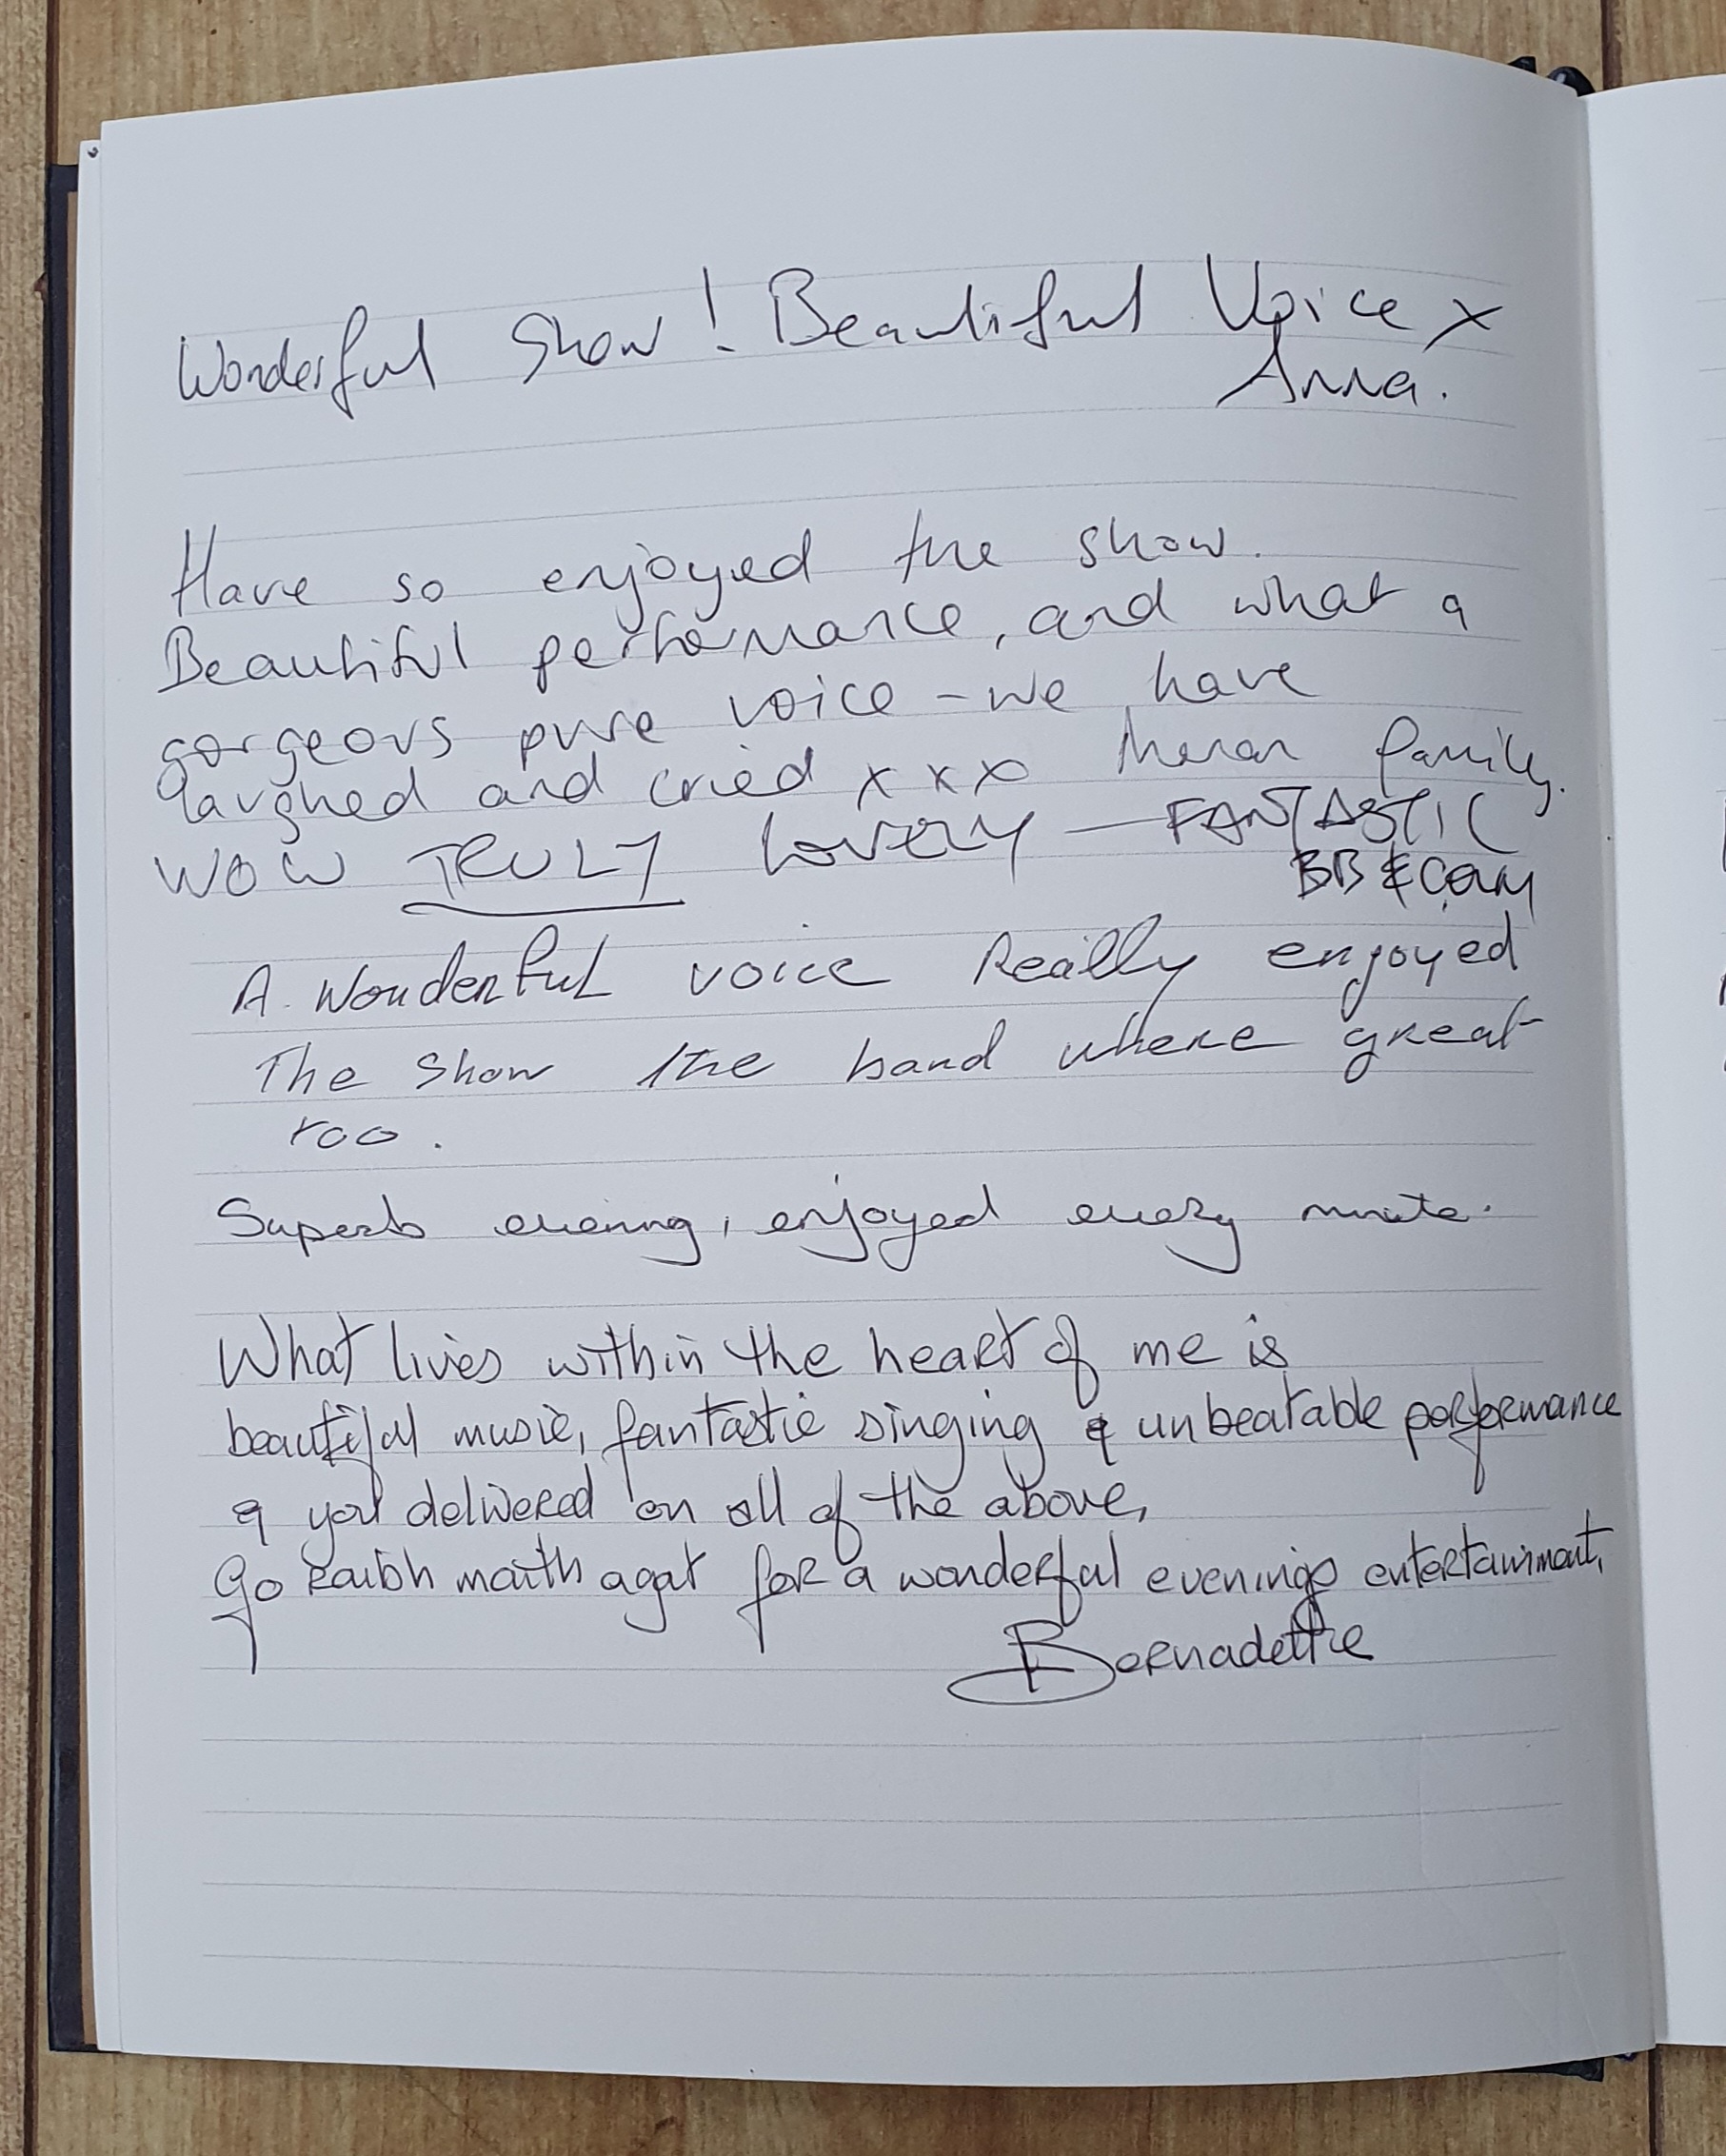 Wonderful Show! Beautiful Voice x
Anna.
Have so enjoyed the show.
Beautiful performance, and what a
gorgeous pure voice - we have
laughed and cried x x x family.
WOW TRULY LOVELY — FANTASTIC
A. Wonderful voice Really enjoyed
The Show The band where great
too.
Superb evening, enjoyed every minute.
What lives within the heart of me is
beautiful music, fantastic singing & unbeatable performance
& you delivered on all of the above,
Go raibh maith agat for a wonderful evenings entertainment,
Bernadette